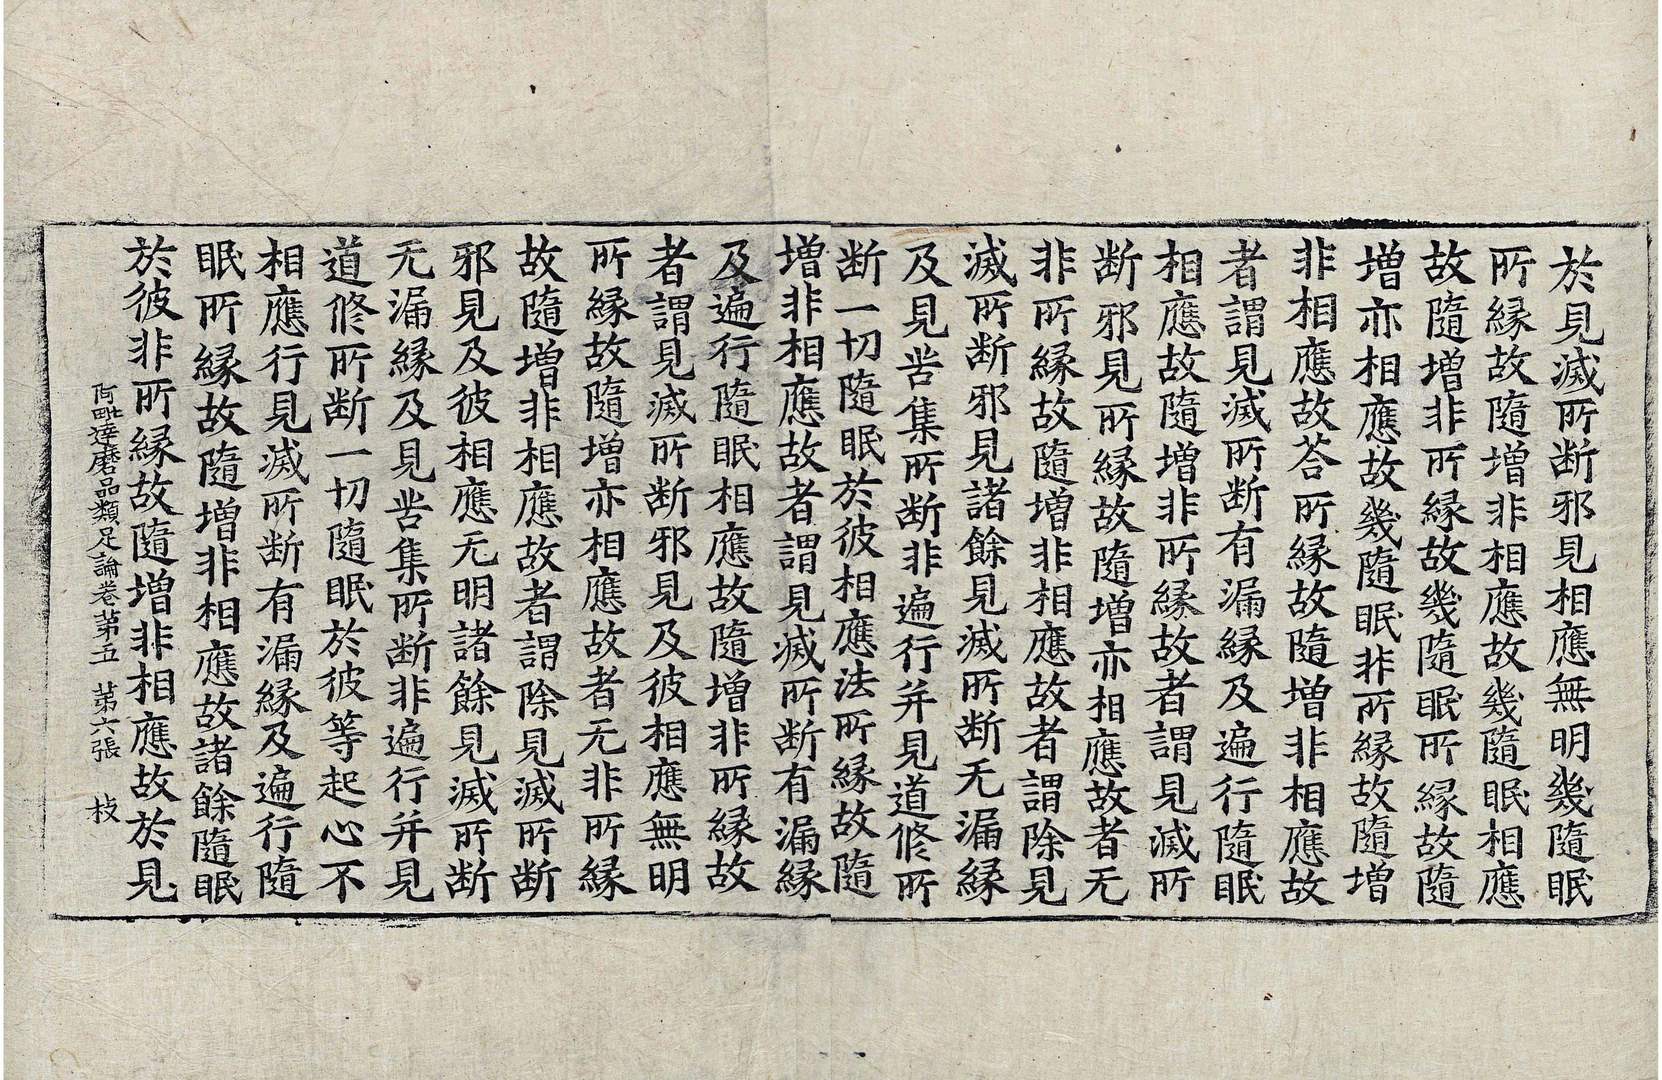 於見滅所断邪見相應無明幾隨眠
所縁故隨增非相應故幾隨眠相應
故隨增非所縁故幾隨眠所縁故隨
增亦相應故幾隨眠非所縁故隨增
非相應故荅所縁故隨增非相應故
者謂見滅所断有漏縁及遍行隨眠
相應故隨增非所縁故者謂見滅所
断邪見所縁故隨增亦相應故者无
非所縁故隨增非相應故者謂除見
滅所断邪見諸餘見滅所断无漏縁
及見苦集所断非遍行并見道修所
断一切隨眠於彼相應法所縁故隨
增非相應故者謂見滅所断有漏縁
及遍行隨眠相應故隨增非所縁故
者謂見滅所断邪見及彼相應無明
所縁故隨增亦相應故者无非所縁
故隨增非相應故者謂除見滅所断
邪見及彼相應无明諸餘見滅所断
无漏縁及見苦集所断非遍行并見
道修所断一切隨眠於彼等起心不
相應行見滅所断有漏縁及遍行隨
眠所縁故隨增非相應故諸餘隨眠
於彼非所縁故隨增非相應故於見
阿毗達磨品類足論卷第五 第六張 枝